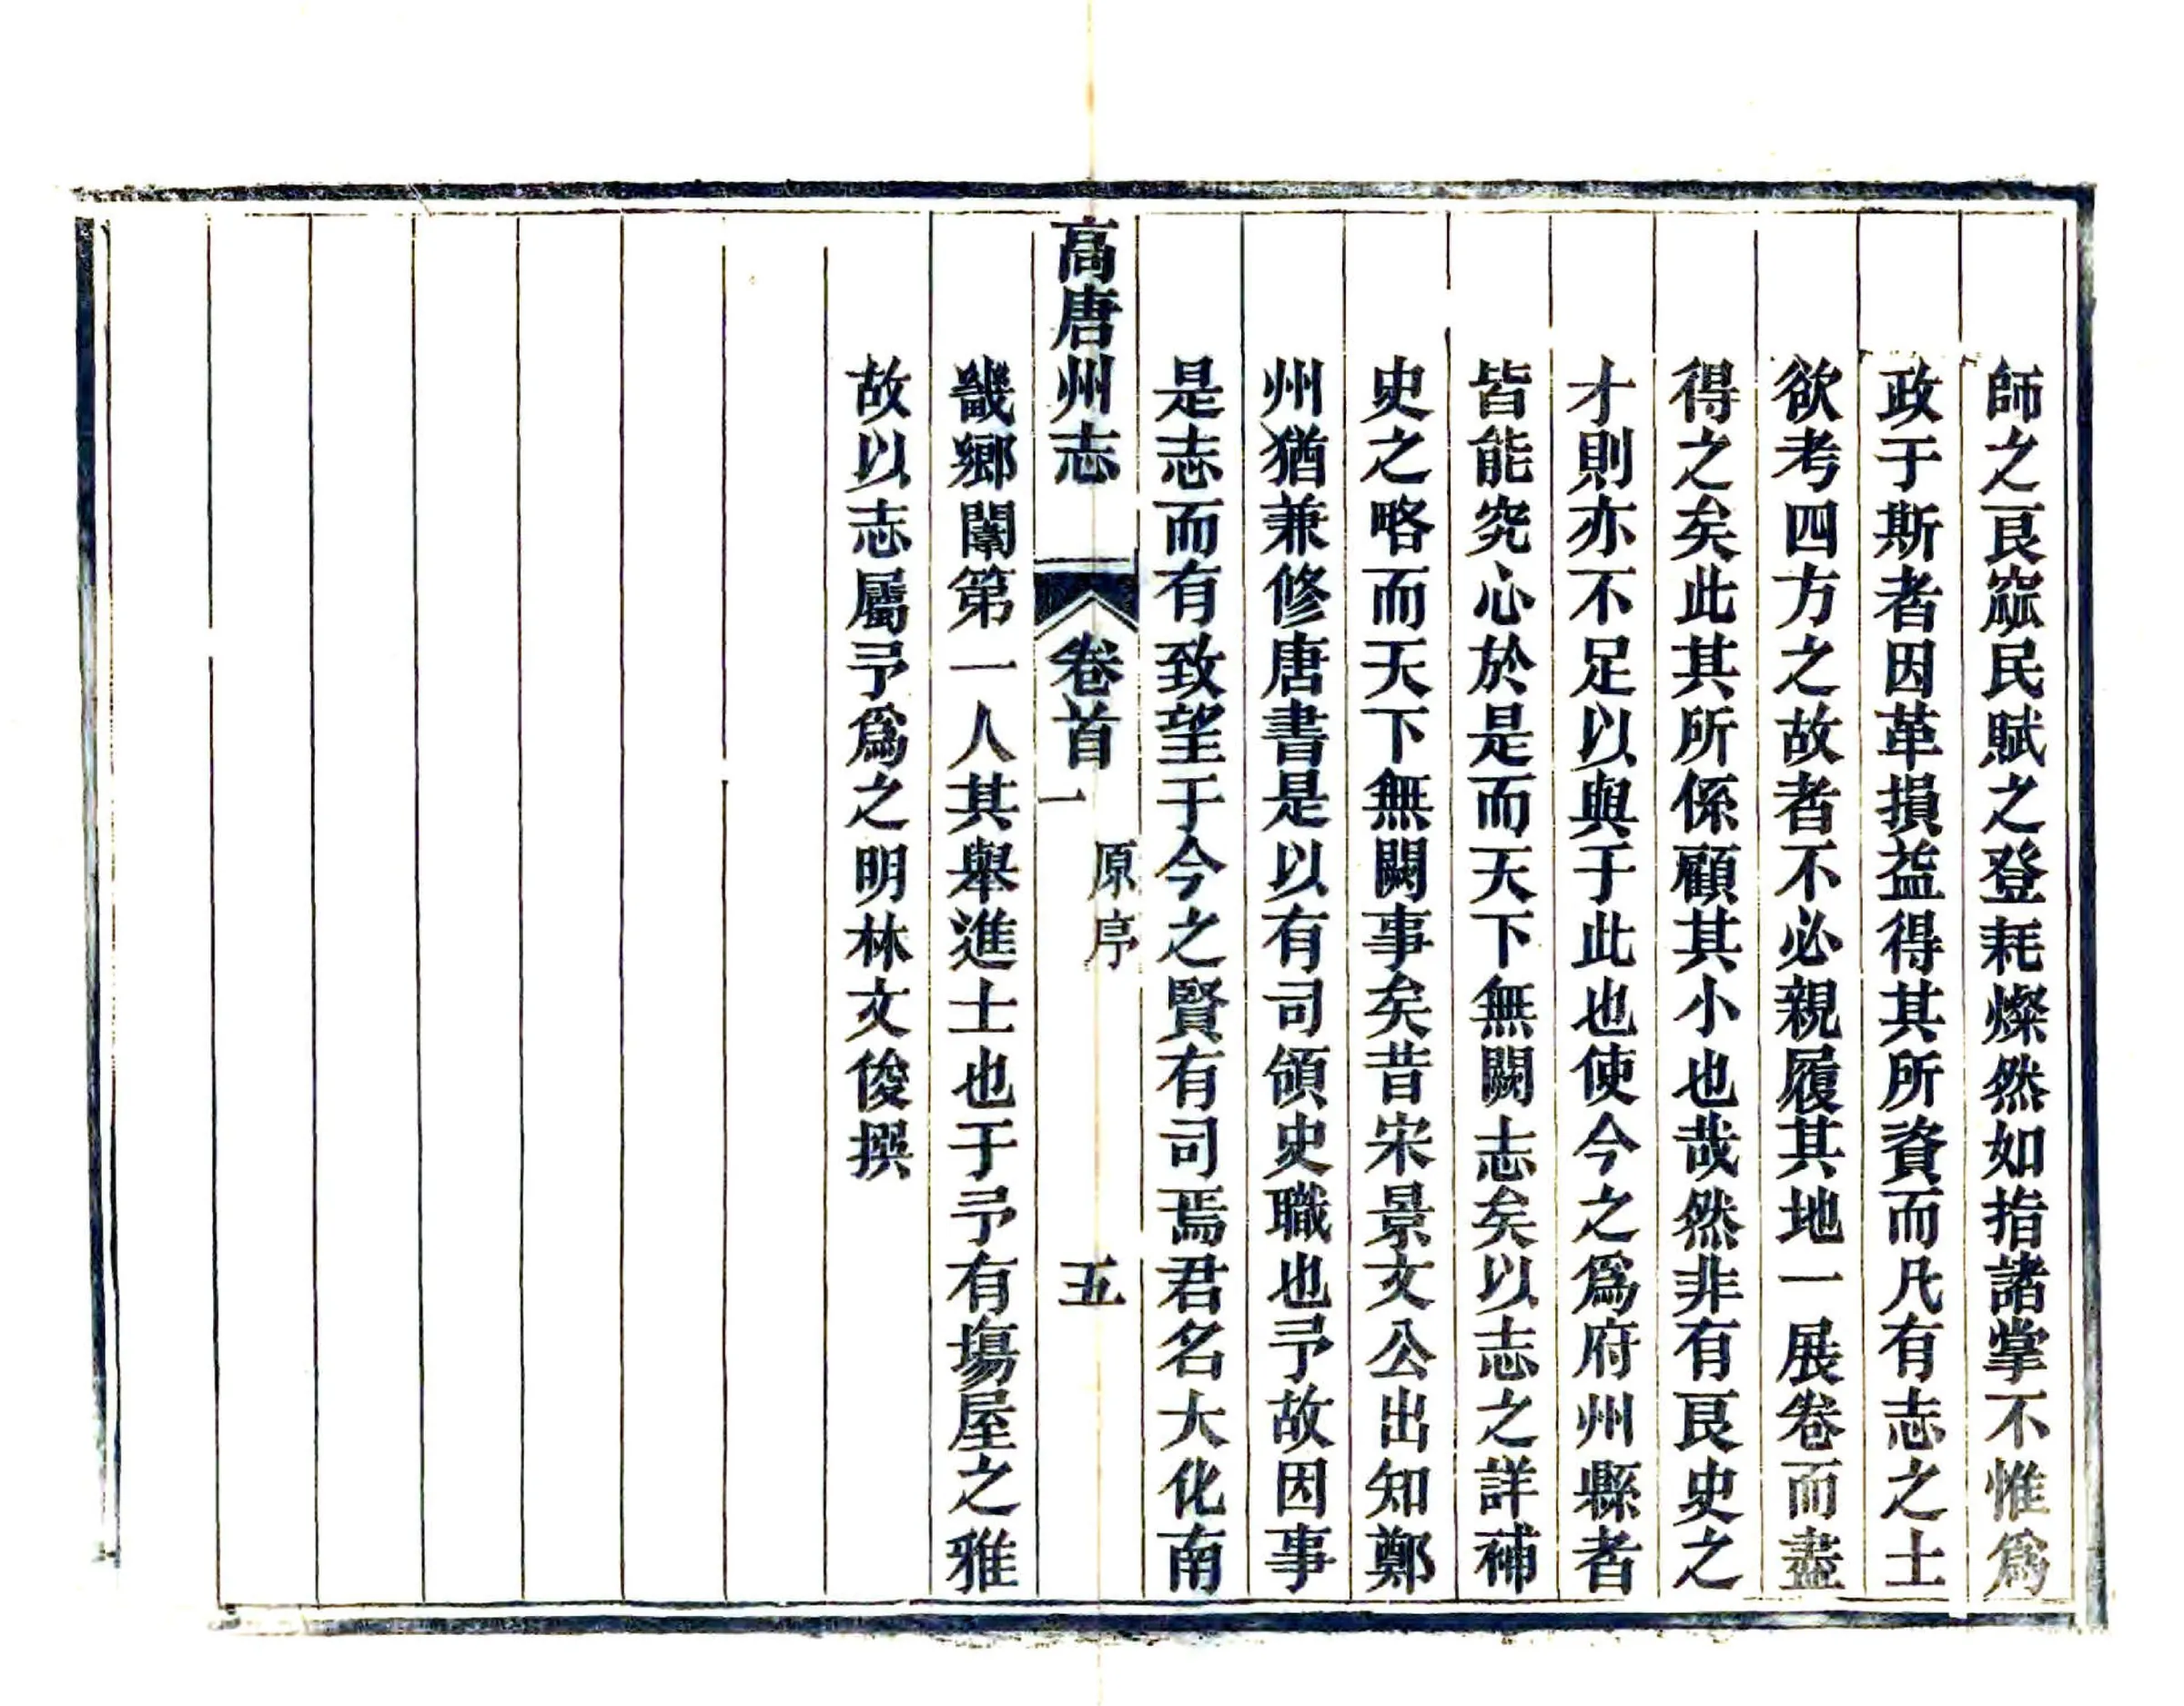 師之良窳民賦之登耗燦然如指諸掌不惟爲
政于斯者因革損益得其所資而凡有志之士
欲考四方之故者不必親履其地一展卷而盡
得之矣此其所係顧其小也哉然非有良史之
才則亦不足以與于此也使今之爲府州縣者
皆能究心於是而天下無闕志矣以志之詳補
史之略而天下無闕事矣昔宋景文公出知鄭
州猶兼修唐書是以有司領史職也予故因事
是志而有致望于今之賢有司焉君名大化南
高唐州志 卷首一 原序 五
畿鄉闈第一人其舉進士也于予有塲屋之雅
故以志屬予爲之明林文俊撰